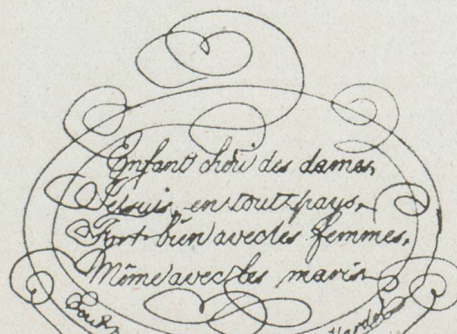 Enfant chéri des dames,
Je suis, en tout pays,
Fort bien avec les femmes,
Même avec les maris